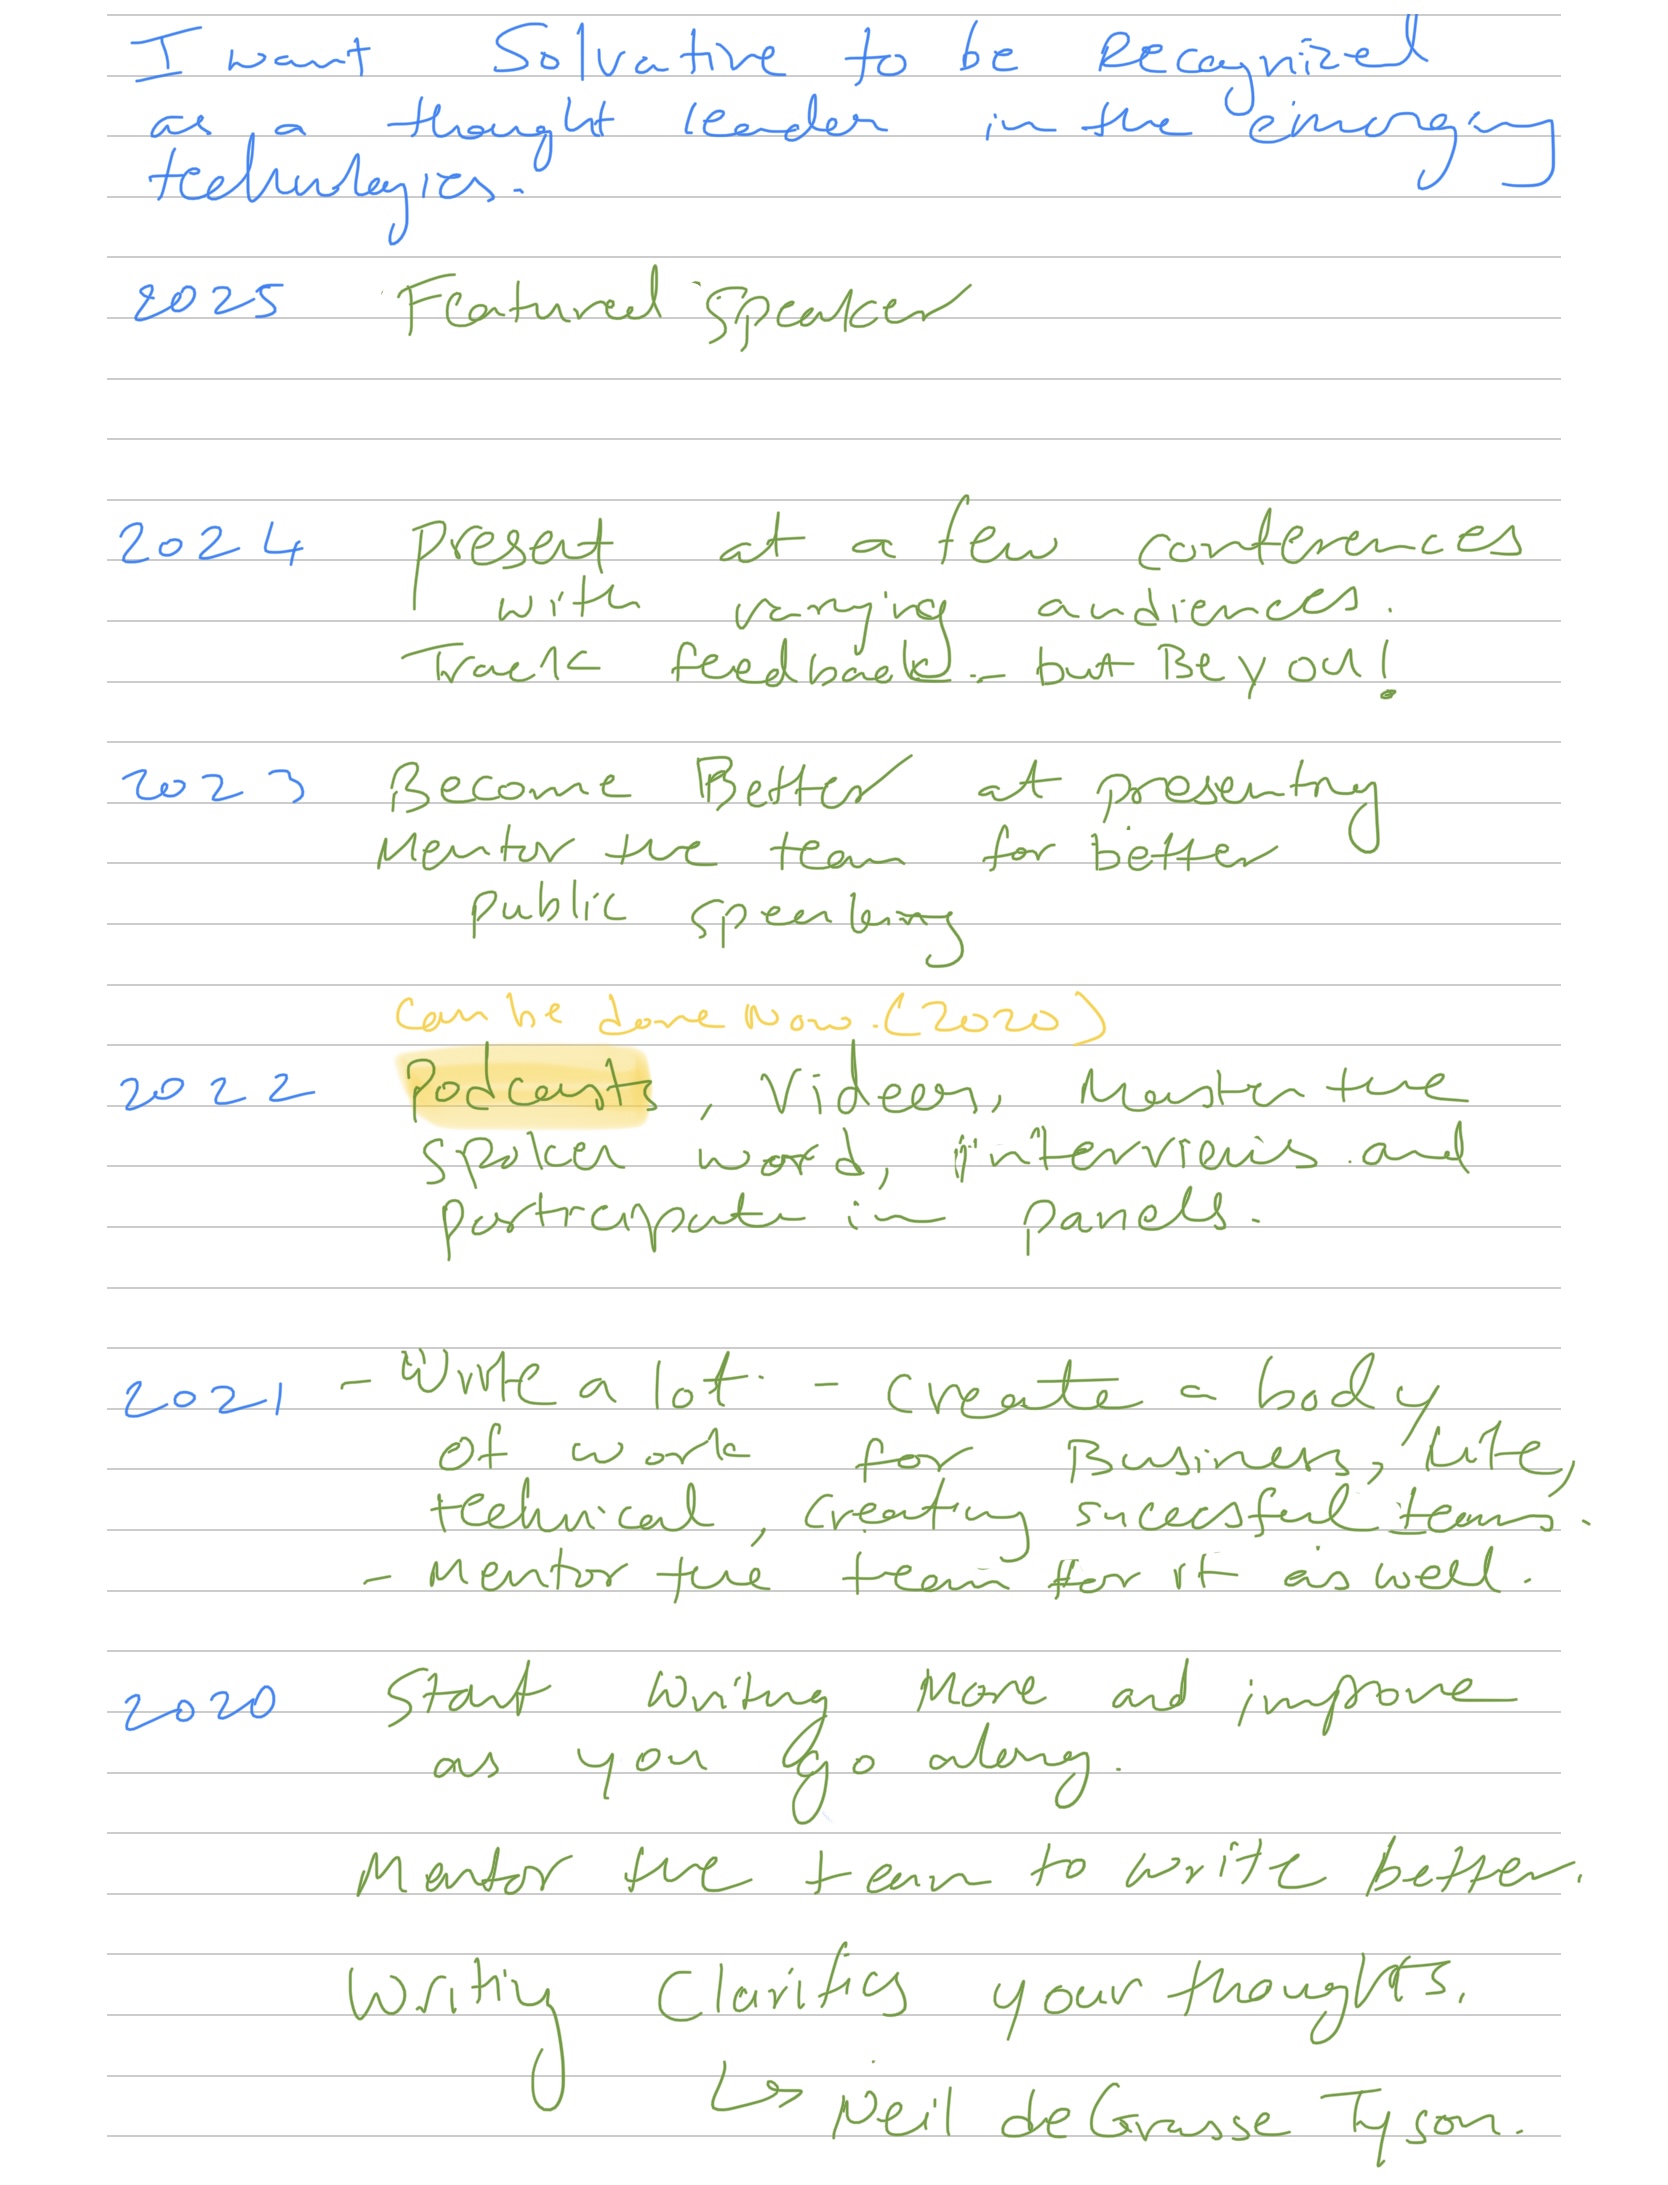 I want Solvative to be Recognized
as a thought leader in the emerging
technologies.
2025 Featured Speaker
2024 Present at a few conferences
with varying audiences.
Track feedback - but Be you!
2023 Become Better at presenting
Mentor the team for better
public speaking
Can be done Now. (2020)
2022 Podcasts, Videos, Master the
spoken word, interviews and
participate in panels.
2021 - Write a lot. - Create a body
of work for Business, Life,
technical, creating successful teams.
- Mentor the team for it as well.
2020 Start writing More and improve
as you go along.
Mentor the team to write better.
Writing Clarifies your thoughts.
↳ Neil deGrasse Tyson.